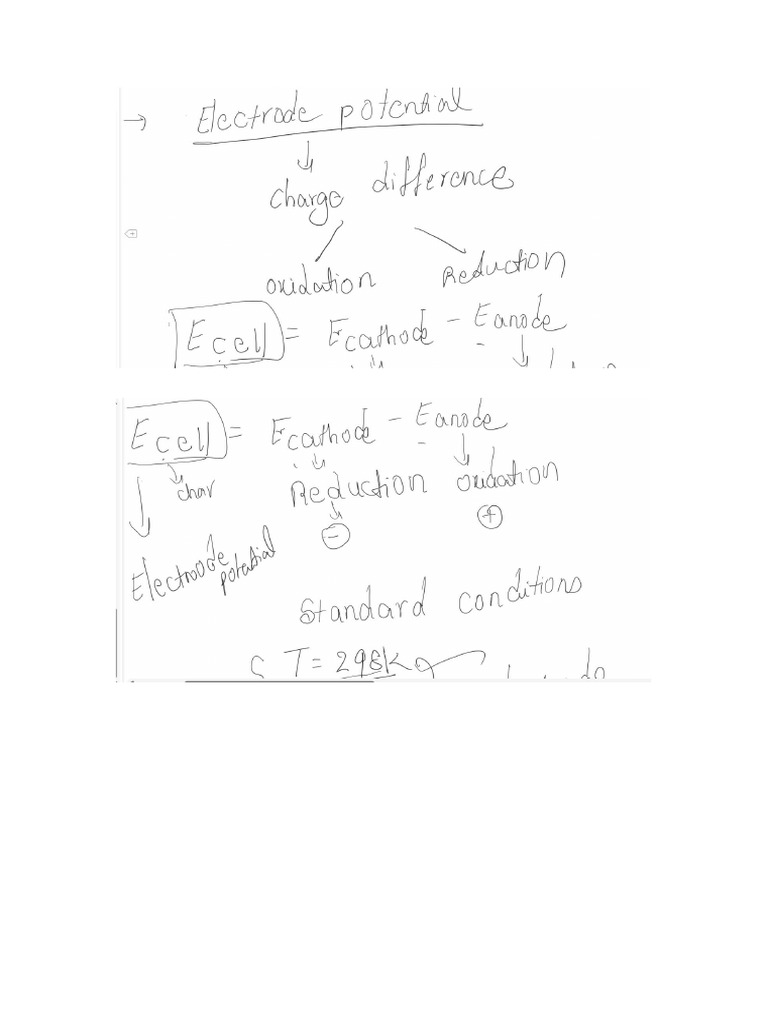 → Electrode potential
↓
charge difference
oxidation Reduction
Ecell = Ecathode - Eanode
Ecell = Ecathode - Eanode
char Reduction oxidation
⊖ ⊕
Electrode potential
Standard conditions
T = 298K